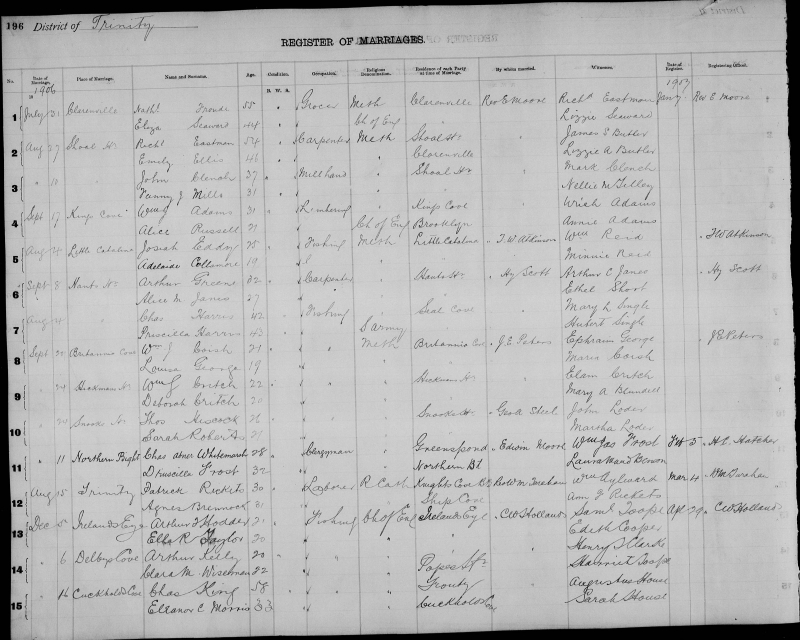 196 District of Trinity
REGISTER OF MARRIAGES.
No. Date of Marriage. Place of Marriage. Name and Surname. Age. Condition. Occupation. Religious Denomination. Residence of each Party at time of Marriage. By whom married. Witnesses. Date of Register. Registering Official.
1906 B. W. S. 1907
1 July 21 Clarenville Nathl 55 Grocer Meth Clarenville Rev E Moore Richd Eastman Jany Rev E Moore
Eliza Seaward 44 Ch of Eng Lizzie Seaward
2 Aug 27 Shoal Hr Richd Eastman 54 Carpenter Meth Shoal Hr James S Butler
Emily Ellis 46 Clarenville Lizzie A Butler
3 " 11 John Clench 37 Millhand Shoal Hr Mark Clench
Fanny J Mills 31 Nellie M Tilley
4 Sept 17 Kings Cove Adams 31 Lumbering Kings Cove Adams
Alice Russell 21 Ch of Eng Brooklyn Annie Adams
5 Aug Little Catalina Josiah Eddy 25 Fishing Meth Little Catalina " T. W Atkinson Wm Reid " T W Atkinson
Adelaide 19 Minnie Reid
6 Sept 8 Hants Hr Arthur Greene 32 Carpenter Hants Hr " Hy Scott Arthur C Janes " Hy Scott
Alice M Janes 27 Ethel Short
7 Aug Chas Harris 42 Fishing Seal Cove Mary L Single
Priscilla Harris 43 S army Hubert Single
8 Sept 20 Britannia Cove Wm J Corish 21 Meth Britannia Cove " J. E Peters Ephraim George " J E Peters
Louisa George 19 Maria Corish
9 " 24 Hickmans Hr Critch 22 Hickmans Hr Elam Critch
Deborah Critch 20 Mary A Blundell
10 " 24 Snooks Hr Thos Hiscock 26 Snooks Hr " Geo A Steel John Loder
Sarah Roberts 21 Martha Loder
11 " 11 Northern Bight Chas abner Whitemarsh 28 Clergyman Greenspond " Edwin Moore Wm Jas Frost Feb 5 " H. C. Hatcher
Druscilla Frost 32 Northern Bt Laura Benson
12 Aug 15 Trinity Patrick Rickets 30 Laborer R Cath Knights Cove Mar 4
Agnes Brennock 31 Ship Cove Ann J Rickets
13 Dec 5 Irelands Eye Arthur T Hodder 21 Fishing Ch of Eng Irelands Eye " C W Holland Saml Cooper Apl 29 " C W Holland
Ella R Taylor 20 Edith Cooper
14 " 6 Delbys Cove Arthur Kelly 20 Henry J Clarke
Clara M Wiseman 22 Popes Hr Harriet Cooper
15 " 16 Cuckholds Cove Chas King 58 Trouty Augustus House
Elleanor C Morris 33 Cuckholds Cove Sarah House